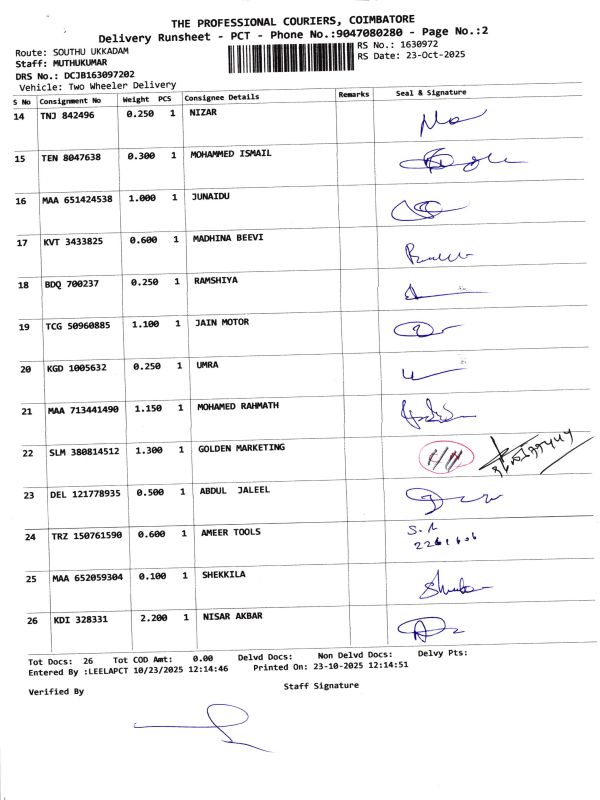 THE PROFESSIONAL COURIERS, COIMBATORE
Delivery Runsheet - PCT - Phone No.:9047080280 - Page No.:2
Route: SOUTHU UKKADAM RS No.: 1630972
Staff: MUTHUKUMAR RS Date: 23-Oct-2025
DRS No.: DCJB163097202
Vehicle: Two Wheeler Delivery
S No Consignment No Weight PCS Consignee Details Remarks Seal & Signature
14 TNJ 842496 0.250 1 NIZAR
15 TEN 8047638 0.300 1 MOHAMMED ISMAIL
16 MAA 651424538 1.000 1 JUNAIDU
17 KVT 3433825 0.600 1 MADHINA BEEVI
18 BDQ 700237 0.250 1 RAMSHIYA
19 TCG 50960885 1.100 1 JAIN MOTOR
20 KGD 1005632 0.250 1 UMRA
21 MAA 713441490 1.150 1 MOHAMED RAHMATH
22 SLM 380814512 1.300 1 GOLDEN MARKETING
23 DEL 121778935 0.500 1 ABDUL JALEEL
24 TRZ 150761590 0.600 1 AMEER TOOLS
25 MAA 652059304 0.100 1 SHEKKILA
26 KDI 328331 2.200 1 NISAR AKBAR
Tot Docs: 26 Tot COD Amt: 0.00 Delvd Docs: Non Delvd Docs: Delvy Pts:
Entered By :LEELAPCT 10/23/2025 12:14:46 Printed On: 23-10-2025 12:14:51
Verified By Staff Signature